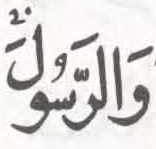 وَالرَّسُولَ